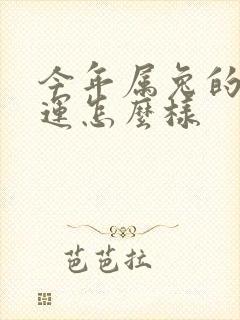 今年属兔的
運怎麼樣
芭芭拉